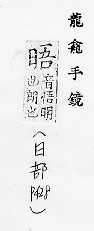 龍龕手鏡
音悟明
也朗也
(日部
P428)